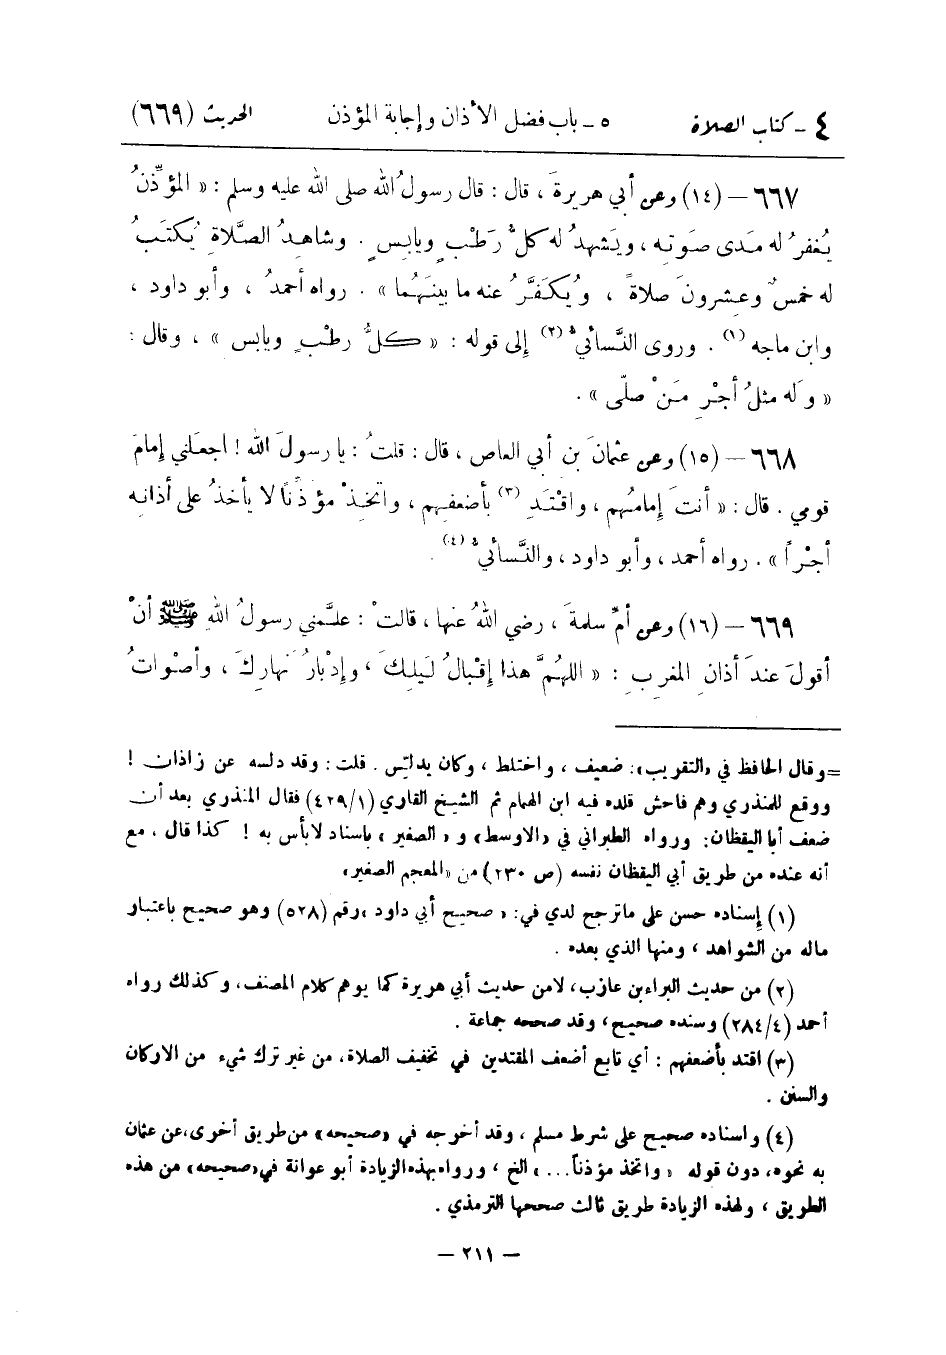 ٤ - كتاب الصلاة ٥ - باب فضل الأذان وإجابة المؤذن الحديث (٦٦٩)
٦٦٧ – (١٤) وعن أبي هريرةَ ، قال : قال رسولُ الله صلى الله عليه وسلم : « المؤذّنُ
يُغفرُ له مَدى صَوته ، ويَشهدُ له كلُّ رَطْبٍ ويابسٍ . وشاهدُ الصَّلاةِ يُكتَبُ
له خمسٌ وعشرونَ صلاةً ، ويُكفَّرُ عنه ما بينَهُما » . رواه أحمدُ ، وأبو داود ،
وابن ماجه (١) . وروى النَّسائيُّ (٢) إلى قوله : « كلُّ رطْبٍ ويابس » ، وقال :
« وَله مثلُ أجْرِ مَنْ صلّى » .
٦٦٨ – (١٥) وعن عثمانَ بن أبي العاص ، قال : قلتُ : يا رسولَ الله ! اجعلني إمامَ
قومي . قال : « أنتَ إمامُهم ، واقْتَدِ (٣) بأضعفِهم ، واتخِذْ مؤذِّناً لا يأخذُ على أذانِه
أجْراً » . رواه أحمد ، وأبو داود ، والنَّسائيُّ (٤) .
٦٦٩ – (١٦) وعن أمِّ سلمةَ ، رضي اللهُ عنها ، قالتْ : علَّمني رسولُ اللهِ ﷺ أنْ
أقولَ عندَ أذانِ المغربِ : « اللهُمَّ هذا إقبالُ لَيلِكَ ، وإدْبارُ نهارِكَ ، وأصْواتُ
=وقال الحافظ في «التقريب»: ضعيف ، واختلط ، وكان يدلس . قلت : وقد دلسه عن زاذان !
ووقع للمنذري وهم فاحش قلده فيه ابن الهمام ثم الشيخ القاري (٤٢٩/١) فقال المنذري بعد أن
ضعف أبا اليقظان: ورواه الطبراني في «الاوسط» و « الصغير » باسناد لابأس به ! كذا قال ، مع
أنه عنده من طريق أبي اليقظان نفسه (ص ٢٣٠) من «المعجم الصغير»
(١) إسناده حسن على ماترجح لدي في: « صحيح أبي داود » رقم (٥٢٨) وهو صحيح باعتبار
ماله من الشواهد ، ومنها الذي بعده .
(٢) من حديث البراء بن عازب، لامن حديث أبي هريرة كما يوهم كلام المصنف، وكذلك رواه
أحمد (٢٨٤/٤) وسنده صحيح، وقد صححه جماعة .
(٣) اقتد بأضعفهم : أي تابع أضعف المقتدين في تخفيف الصلاة، من غير ترك شيء من الاركان
والسنن .
(٤) واسناده صحيح على شرط مسلم ، وقد أخرجه في «صحيحه» من طريق أخرى، عن عثمان
به نحوه، دون قوله « واتخذ مؤذناً... » الخ ، ورواه بهذه الزيادة أبو عوانة في «صحيحه» من هذه
الطريق ، ولهذه الزيادة طريق ثالث صححها الترمذي .
– ٢١١ –